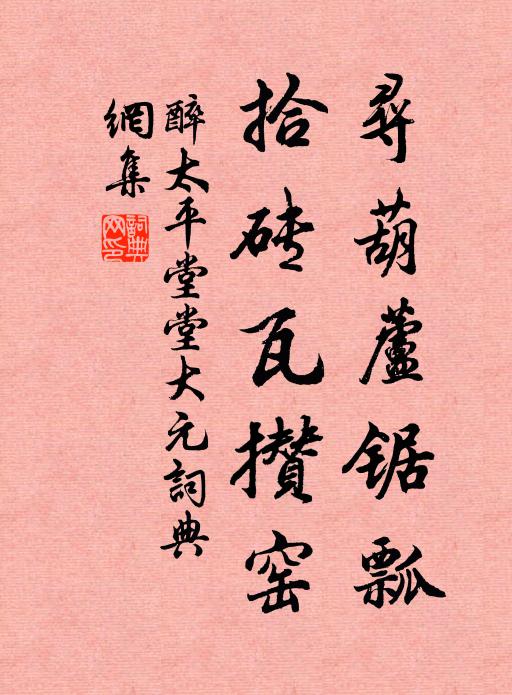 尋葫蘆锯瓢
拾砖瓦攢窑
醉太平堂堂大元詞典
網集
詞典网印